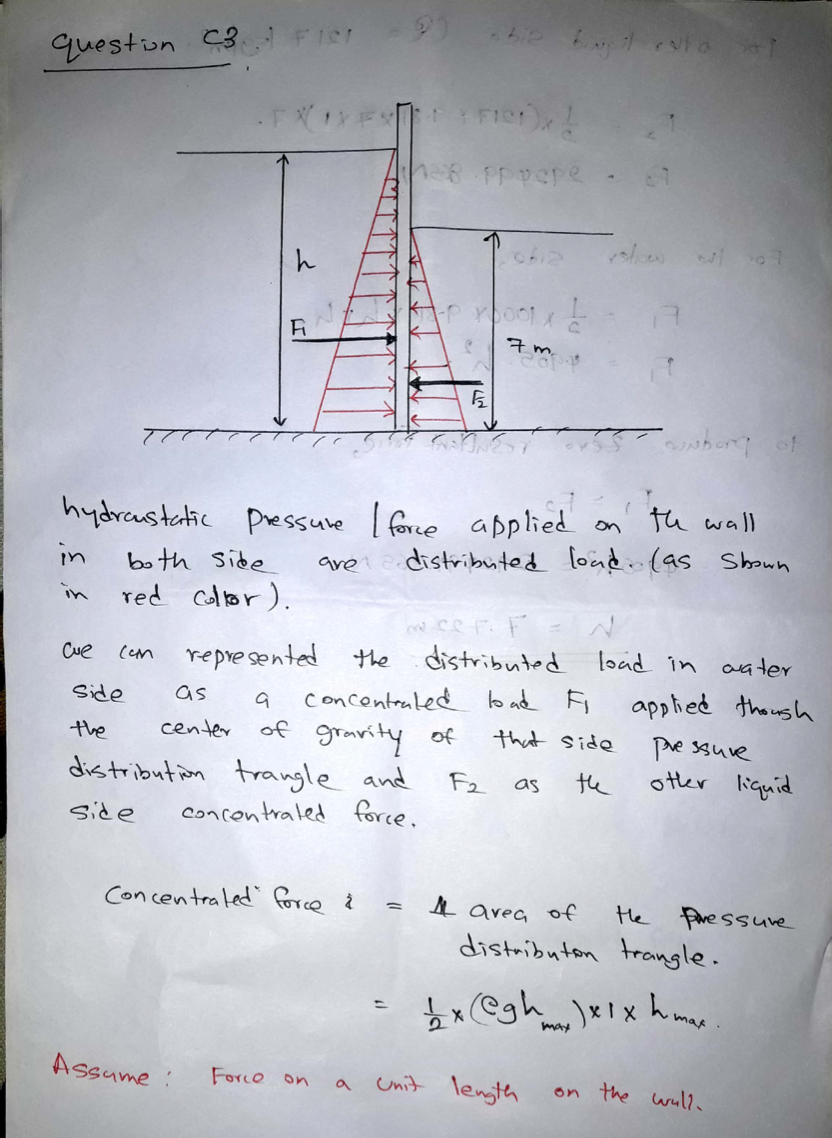 Question C3.
h
F1
7 m
F2
hydraustatic Pressure / force applied on the wall
in both side are distributed load. (as Shown
in red color).
we can represented the distributed load in water
side as a concentrated load F1 applied though
the center of gravity of that side pressure
distribution trangle and F2 as the other liquid
side concentrated force.
Concentrated force = area of the pressure
distributon trangle.
= 1/2 x (ρgh max) x 1 x h max.
Assume : Force on a unit length on the wall.